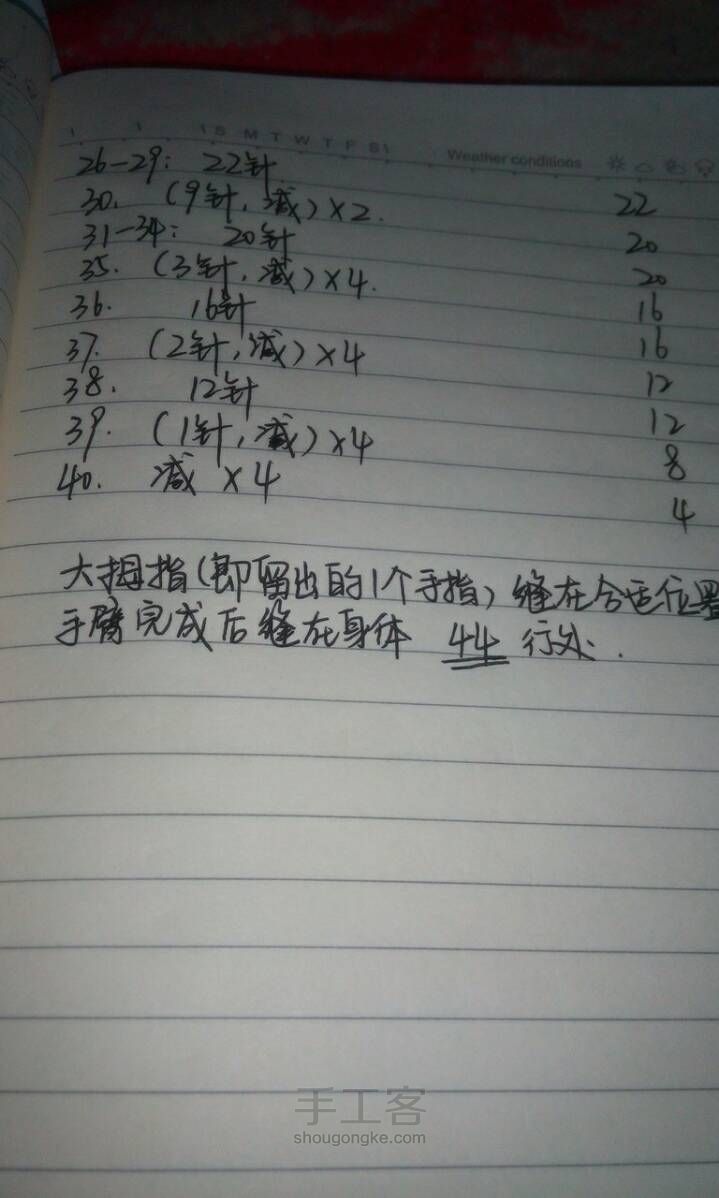 S M T W T F S Weather conditions
26-29: 22针 22
30. (9针,减)×2. 20
31-34: 20针 20
35. (3针,减)×4. 16
36. 16针 16
37. (2针,减)×4 12
38. 12针 12
39. (1针,减)×4 8
40. 减×4 4
大拇指(即留出的1个手指)缝在合适位置
手臂完成后缝在身体 44 行处.
手工客
shougongke.com